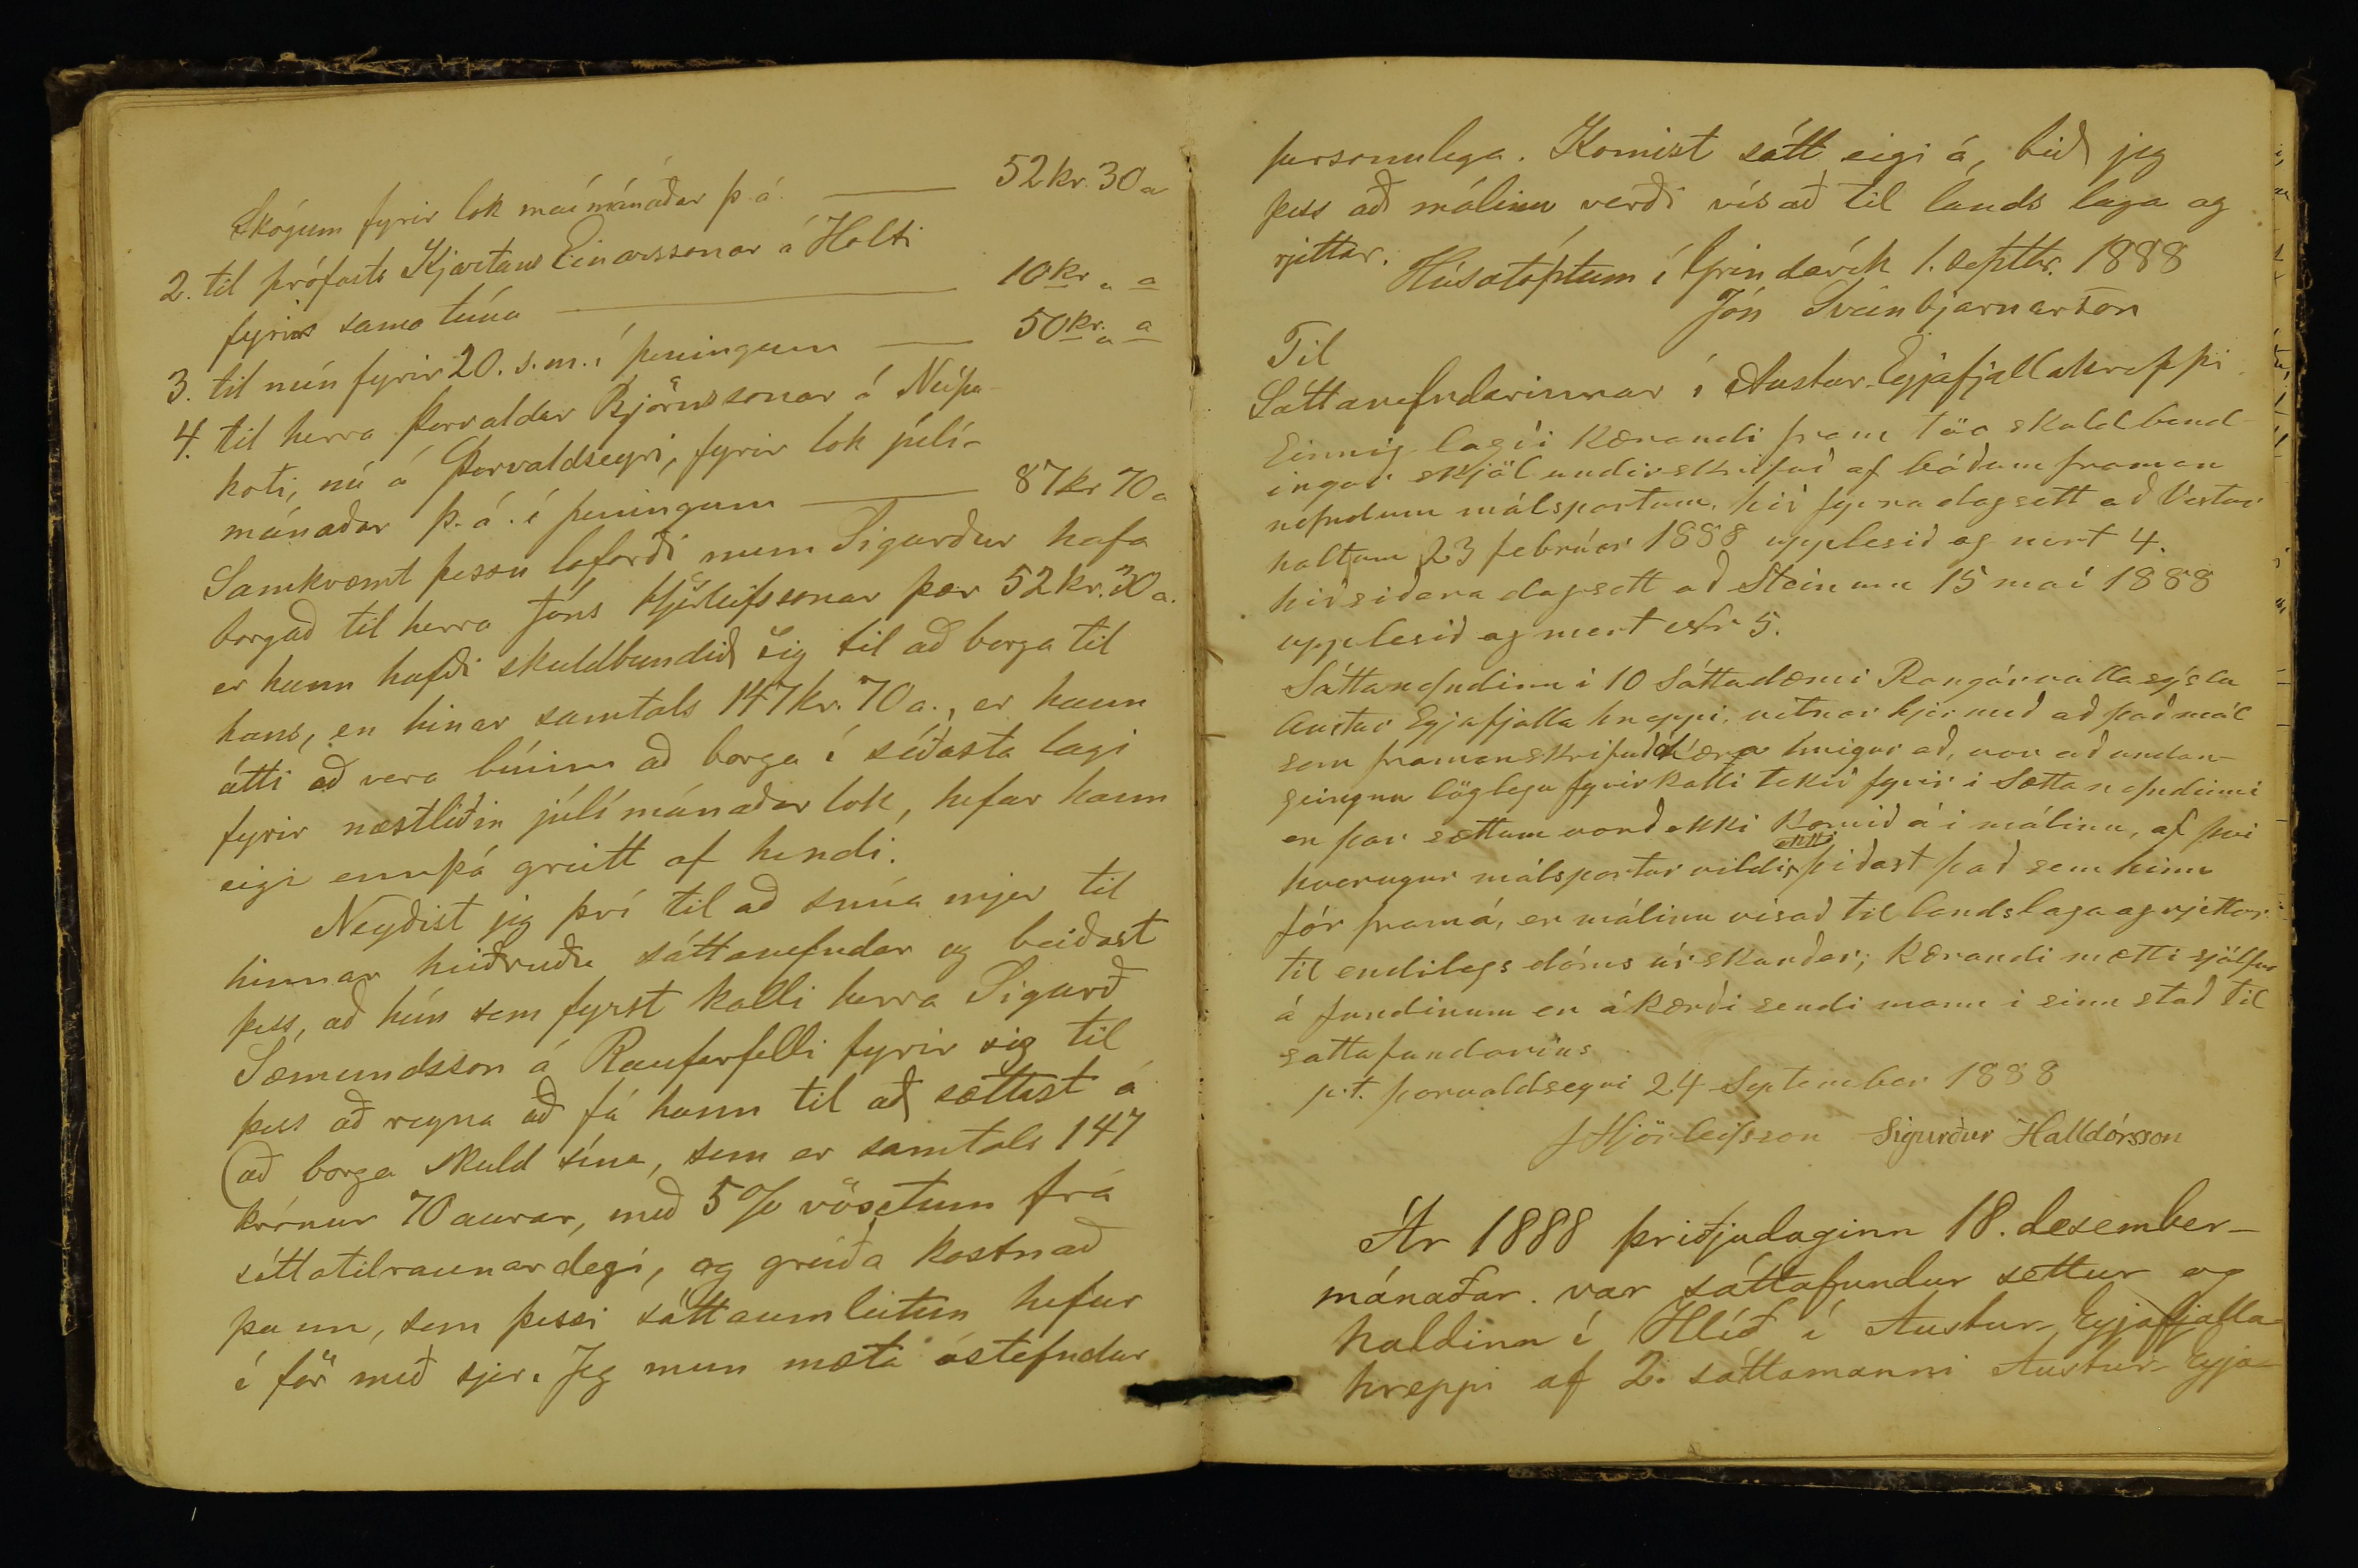 Skógum fyrir lok maímánaðar þ. á. — 52 kr. 30 a
2. til prófasts Kjartans Einarssonar á Holti
fyrir sama tíma — 10 kr „ a
3. til mín fyrir 20. s. m. í peningum — 50 kr. „ a
4. til herra Þorvaldar Björnssonar á Núpa-
koti, nú á Þorvaldseyri, fyrir lok júlí-
mánaðar þ. á. í peningum — 87 kr 70 a
Samkvæmt þessu loforði mun Sigurður hafa
borgað til herra Jóns Hjörleifssonar þær 52 kr. 30 a.
er hann hafði skuldbundið sig til að borga til
hans, en hinar samtals 147 kr. 70 a., er hann
átti að vera búinn að borga í síðasta lagi
fyrir næstliðin júlímánaðar lok, hefur hann
eigi ennþá greitt af hendi.
Neyðist jeg því til að snúa mjer til
hinnar heiðruðu sáttanefndar og beiðast
þess, að hún sem fyrst kalli herra Sigurð
Sæmundsson á Rauðafelli fyrir sig til
þess að reyna að fá hann til að sættast á
að borga skuld sína, sem er samtals 147
krónur 70 aurar, með 5% vöxtum frá
sáttatilraunardegi, og greiða kostnað
þann, sem þessi sáttaumleitun hefur
í för með sjer. Jeg mun mæta óstefndur
persónulega. Komist sátt eigi á, bið jeg
þess að málinu verði vísað til lands laga og
rjettar.
Húsatóptum í Grindavík 1. septbr. 1888
Jón Sveinbjarnarson
Til
Sáttanefndarinnar í Austur-Eyjafjallahreppi
Einnig lagði kærandi fram tvö skuldbind-
ingar skjöl undirskrifuð af báðum framan
nefndum málspörtum, hið fyrra dagsett að Vestur
holtum 23 febrúar 1888 upplesið og mert 4.
hið siðara dagsett að Steinum 15 mai 1888
upplesið og mert 5.
Sáttanefndinn i 10 Sáttadæmi Rangárvallasýslu
Austur Eyjafjalla hreppi, vitnar hjer með að það mál
sem framanskrifuð kæra hnigur að, var að undan-
geingnu löglegu fyrirkalli tekið fyrir i Sættanefndinni
en þar sættum varð ekki komið á i málinu, af þvi
hverugur málspartur vildi ekki þiðast það sem hinn
fór framá, er málinu visað til landslaga og rjettar
til endilegs dóms úrskurðar; kærandi mætti sjálfur
á fundinum en ákærði sendi mann i sinn stað til
sattafundarins
p.t. Þorvaldseyri 24 September 1888
J Hjörleifsson Sigurður Halldórsson
Ár 1888 þriðjudaginn 18. desember-
mánaðar. var sáttafundur settur og
haldinn í Hlíð í Austur-Eyjafjalla-
hreppi af 2. sáttamanni Austur-Eyja-